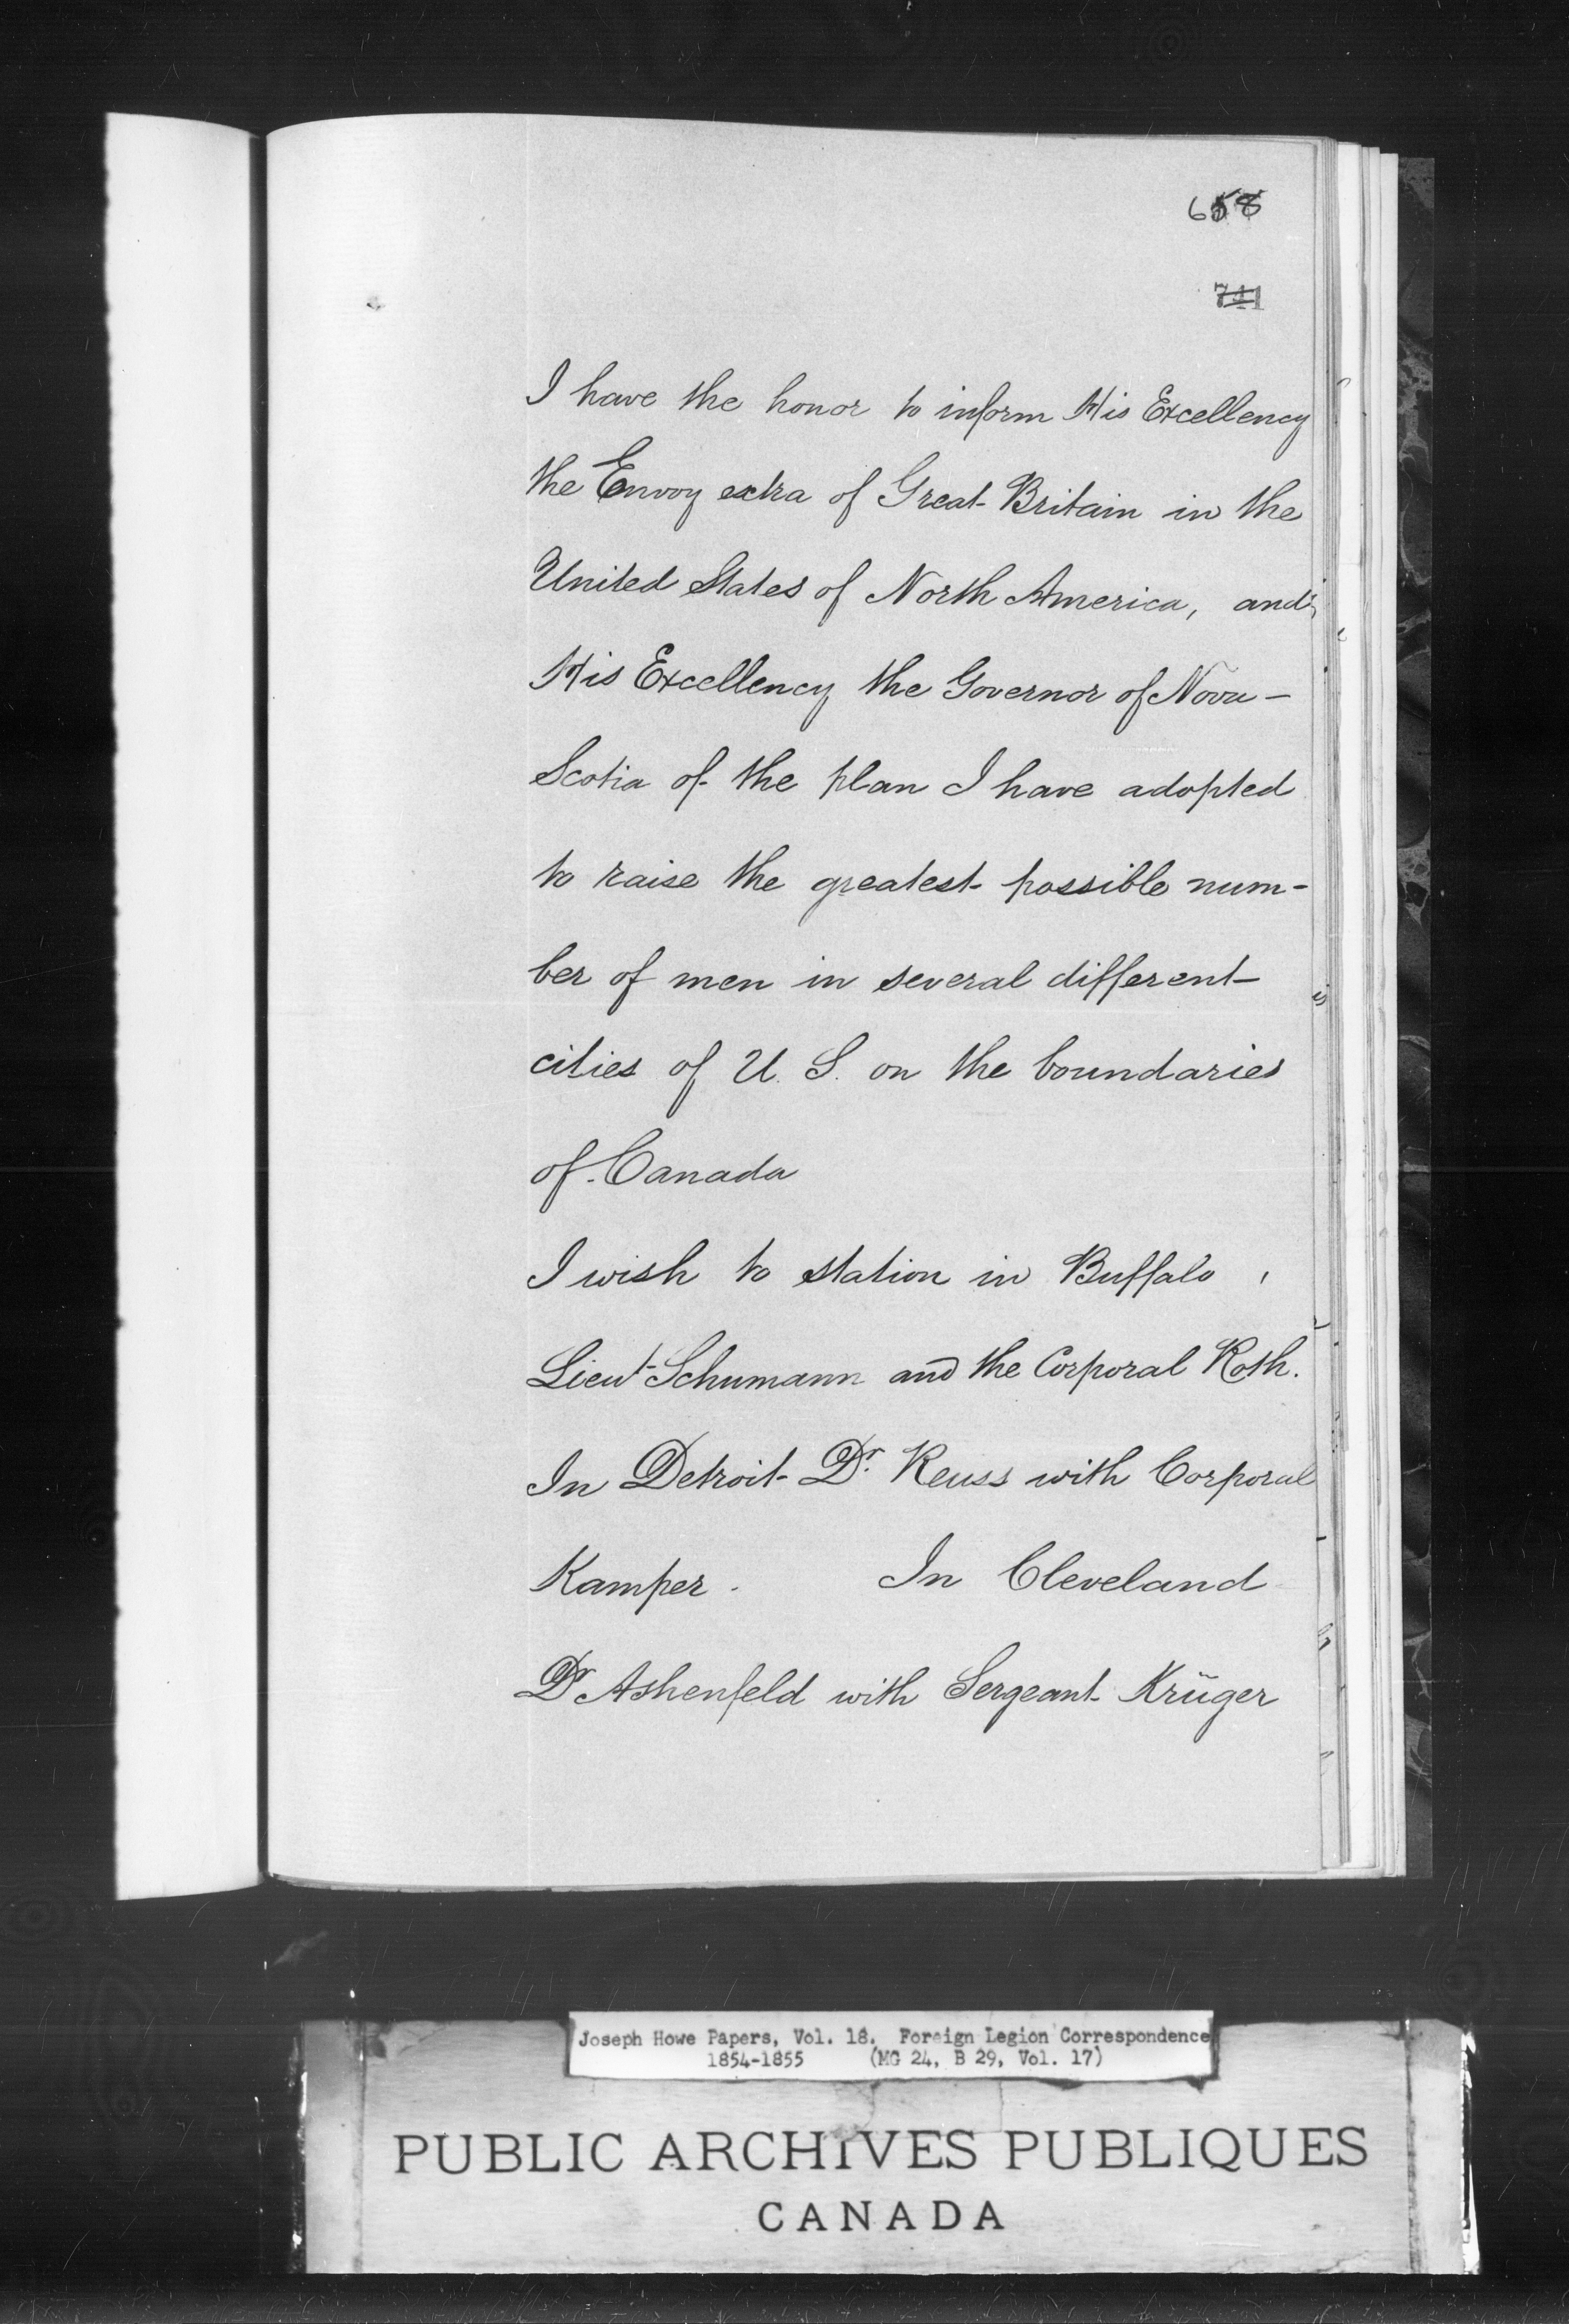 658
741
I have the honor to inform His Excellency
the Envoy extra of Great Britain in the
United States of North America, and
His Excellency the Governor of Nova-
Scotia of the plan I have adopted
to raise the greatest possible num-
ber of men in several different
cities of U. S. on the boundaries
of Canada
I wish to station in Buffalo,
Lieut Schumann and the Corporal Roth.
In Detroit Dr. Reuss with Corporal
Kamper. In Cleveland
Dr Ashenfeld with Sergeant Krüger
Joseph Howe Papers, Vol. 18. Foreign Legion Correspondence
1854-1855 (MG 24, B 29, Vol. 17)
PUBLIC ARCHIVES PUBLIQUES
CANADA